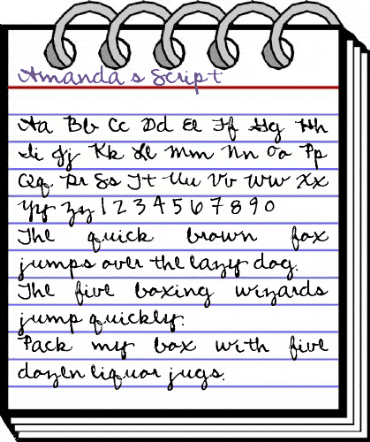 Amanda s Script
Aa Bb Cc Dd Ee Ff Gg Hh
Ii Jj Kk Ll Mm Nn Oo Pp
Qq Rr Ss Tt Uu Vv Ww Xx
Yy Zz 1 2 3 4 5 6 7 8 9 0
The quick brown fox
jumps over the lazy dog.
The five boxing wizards
jump quickly.
Pack my box with five
dozen liquor jugs.